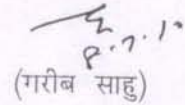 8.7.10
(गरीब साहु)